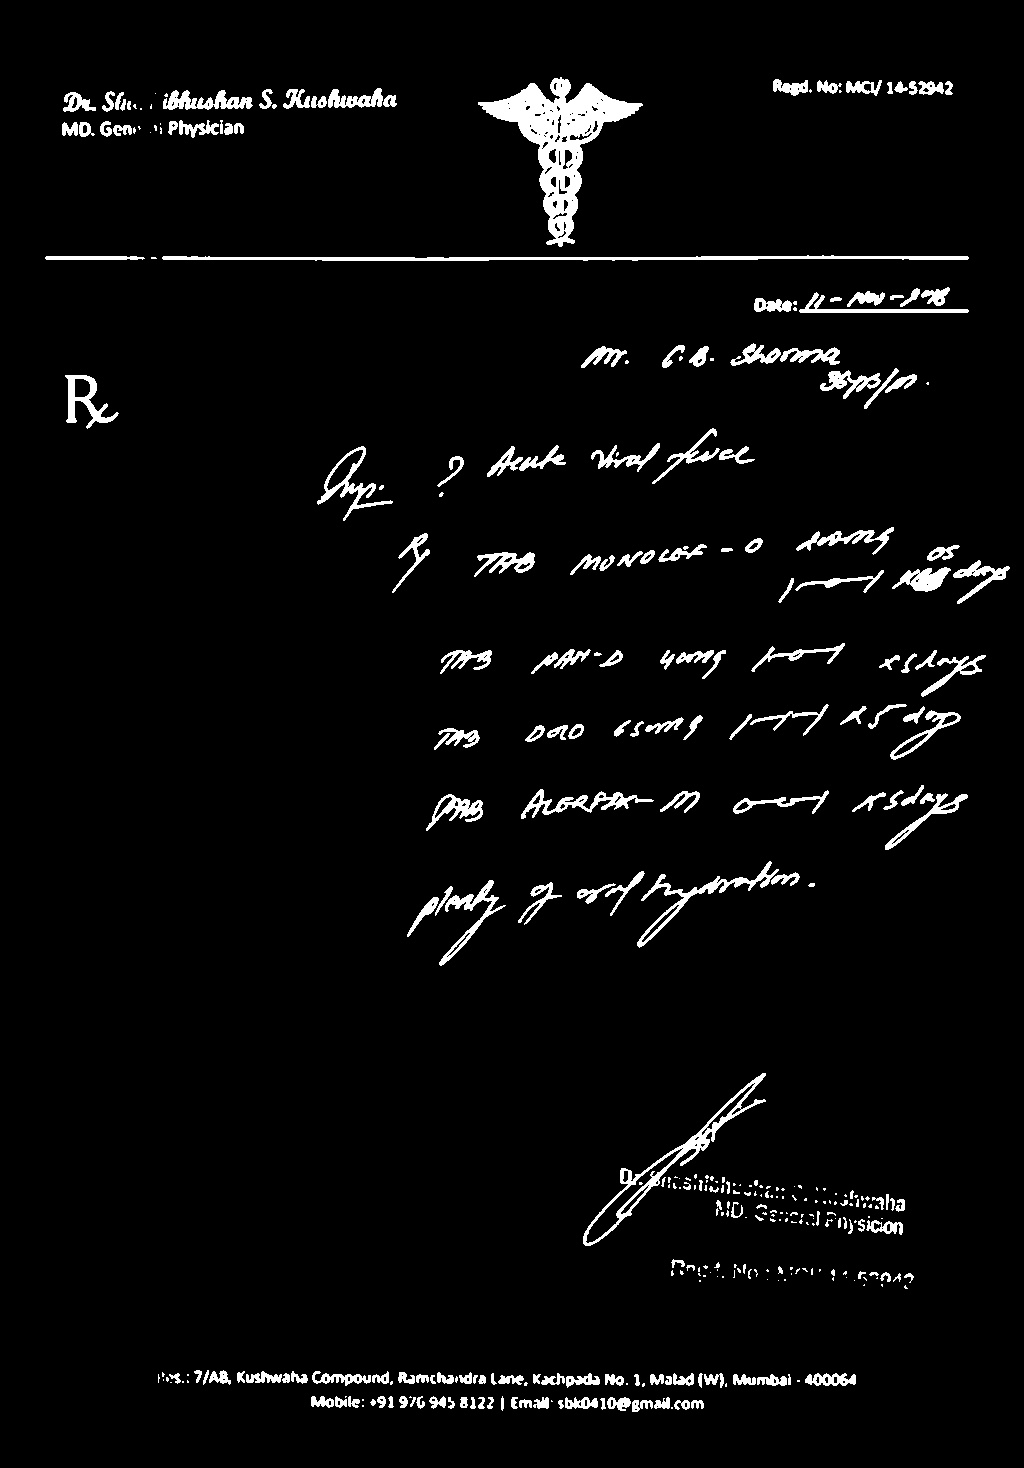 Dr. Shashibhushan S. Kushwaha
MD. General Physician
Regd. No: MCI/ 14-52942
Date: 11 - Nov - 2018
Mr. C.B. Sharma
36yrs/M.
Rx
Imp. ? Acute Viral fever
Rx TAB MONOCEF - O 200mg
1-0-1 x 05 days
TAB PAN-D 40mg 1-0-1 x 5 days
TAB DOLO 650mg 1-1-1 x 5 days
TAB ALERFIX- M 0-0-1 x 5 days
plenty of oral hydration.
Dr. Shashibhushan S. Kushwaha
MD. General Physicion
Regd. No.: MCI/ 14-52942
Res.: 7/AB, Kushwaha Compound, Ramchandra Lane, Kachpada No. 1, Malad (W), Mumbai - 400064
Mobile: +91 976 945 8122 | Email: sbk0410@gmail.com